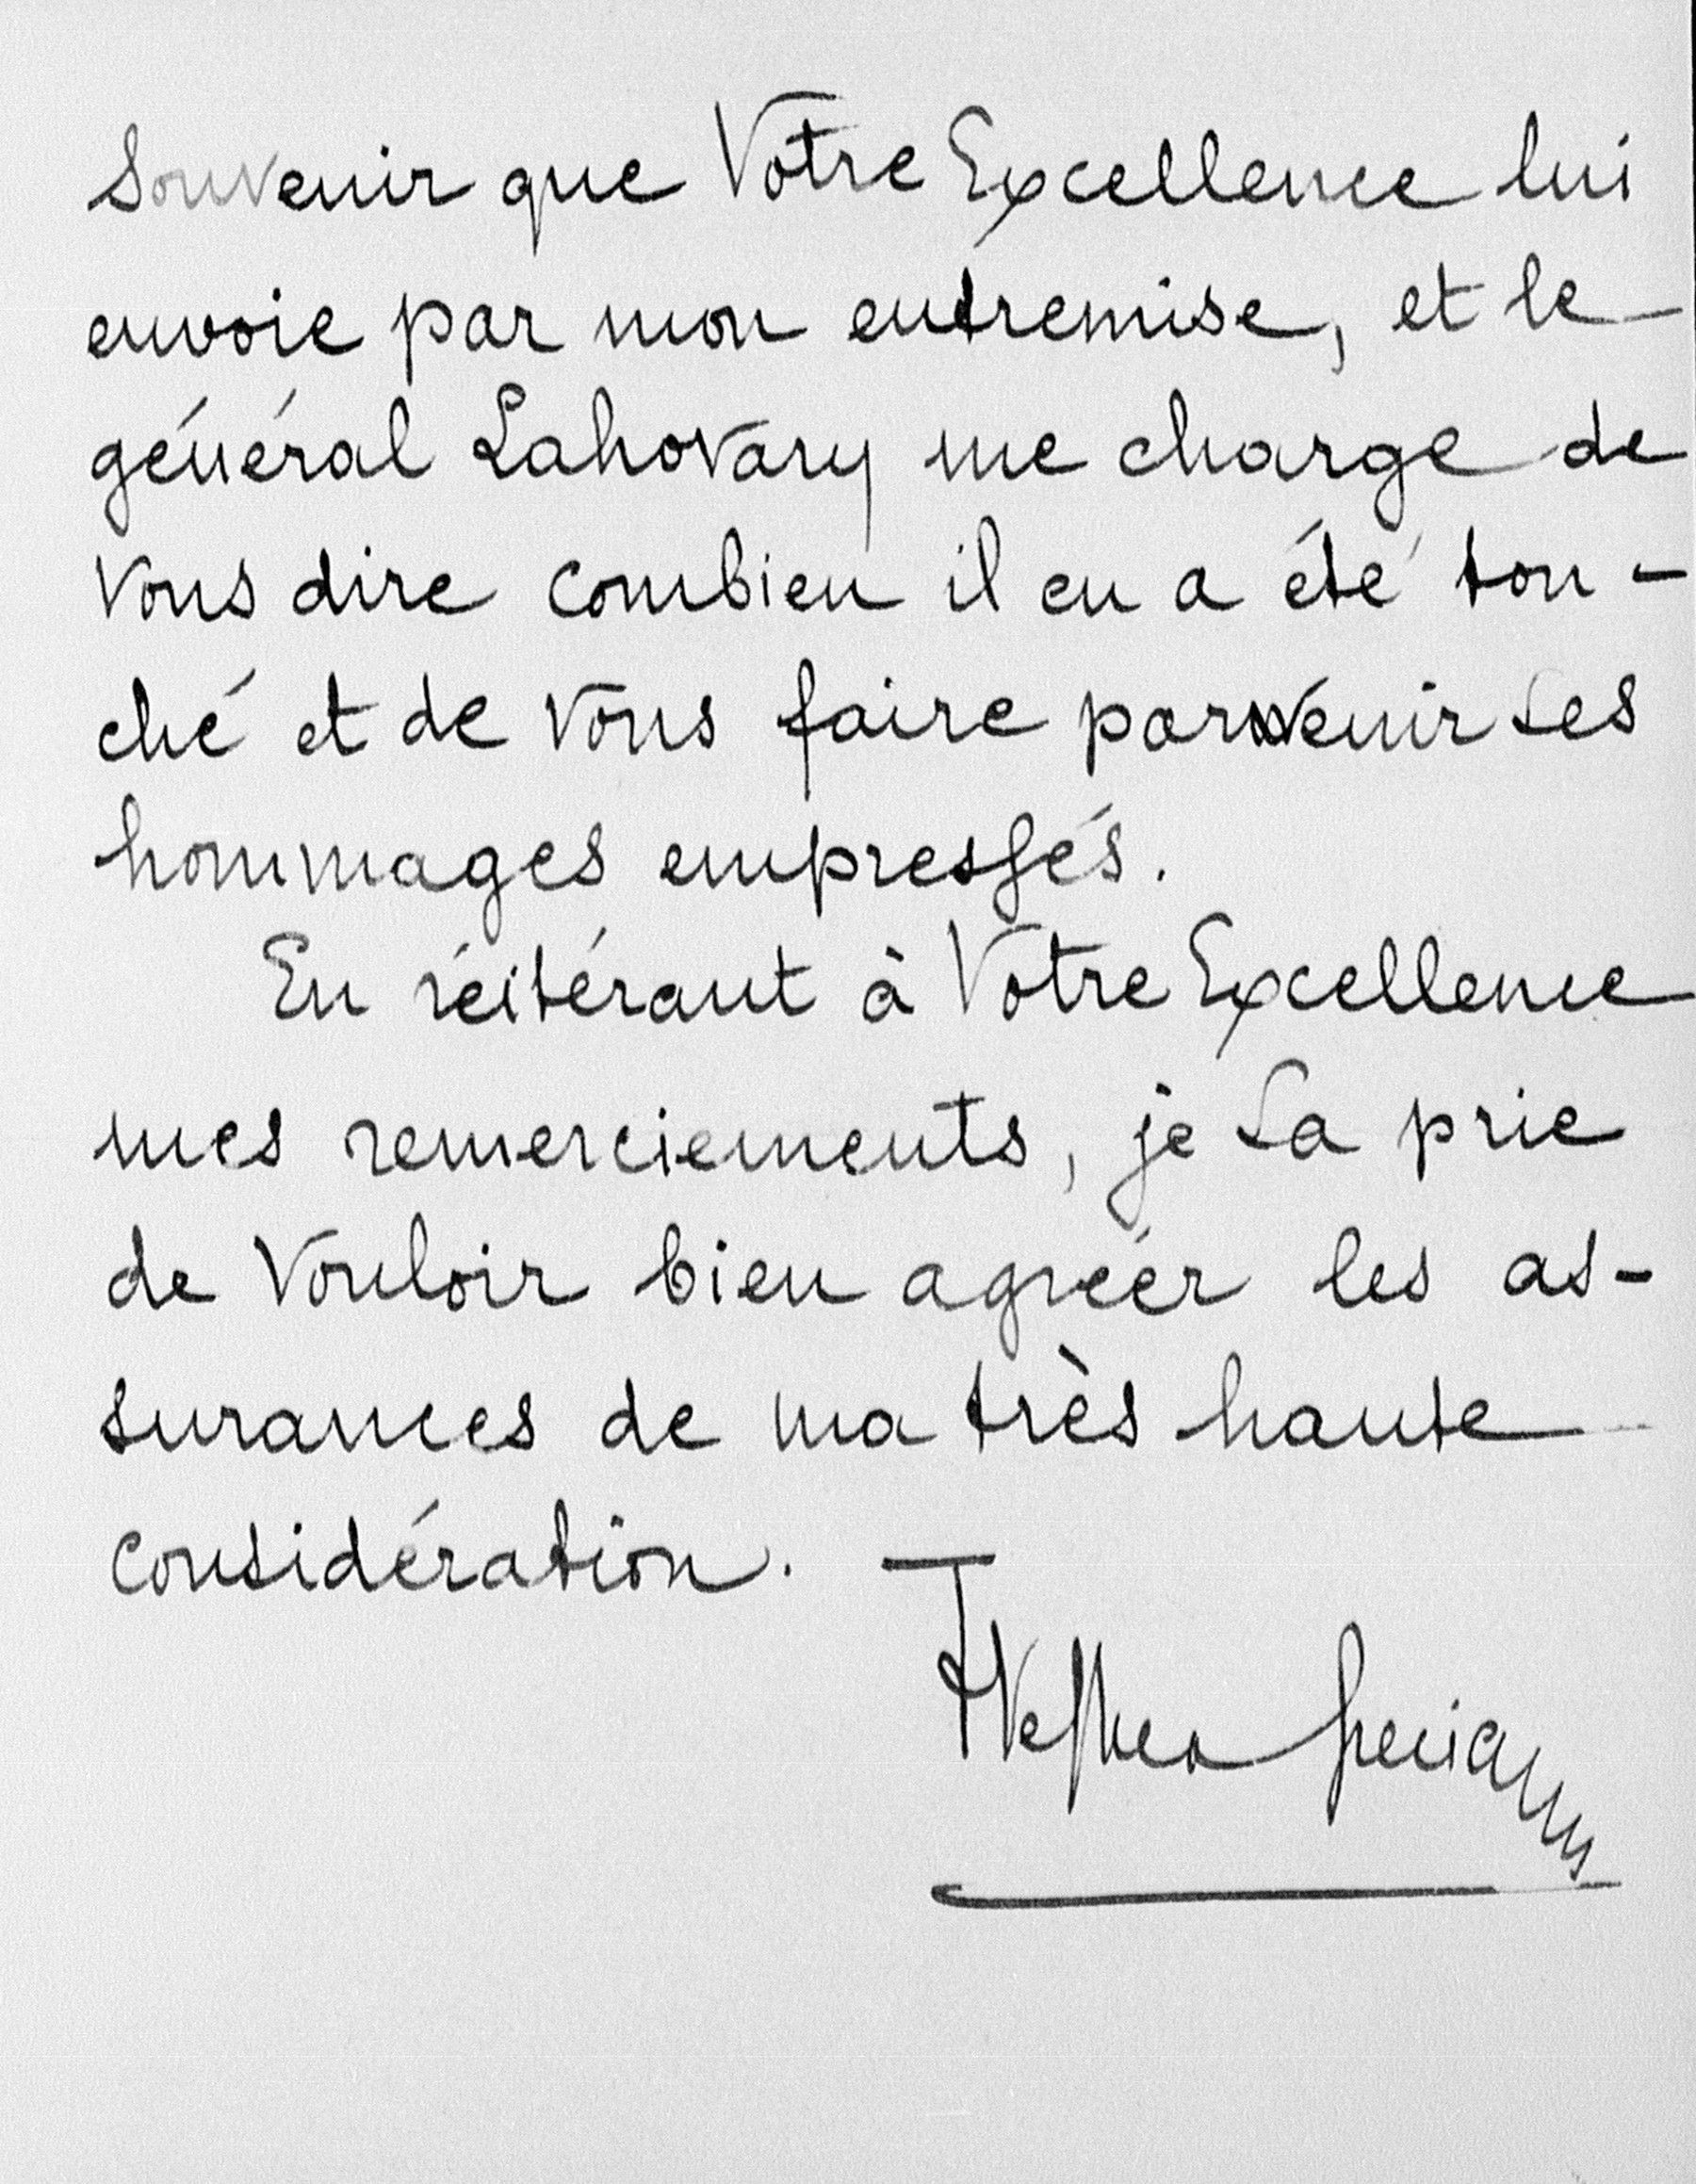 Souvenir que Votre Excellence lui
envoie par mon entremise, et le
général Lahovary me charge de
vous dire combien il en a été tou-
ché et de vous faire parvenir ses
hommages empressés.
En réitérant à Votre Excellence
mes remerciements, je La prie
de vouloir bien agréer les as-
surances de ma très haute
considération.